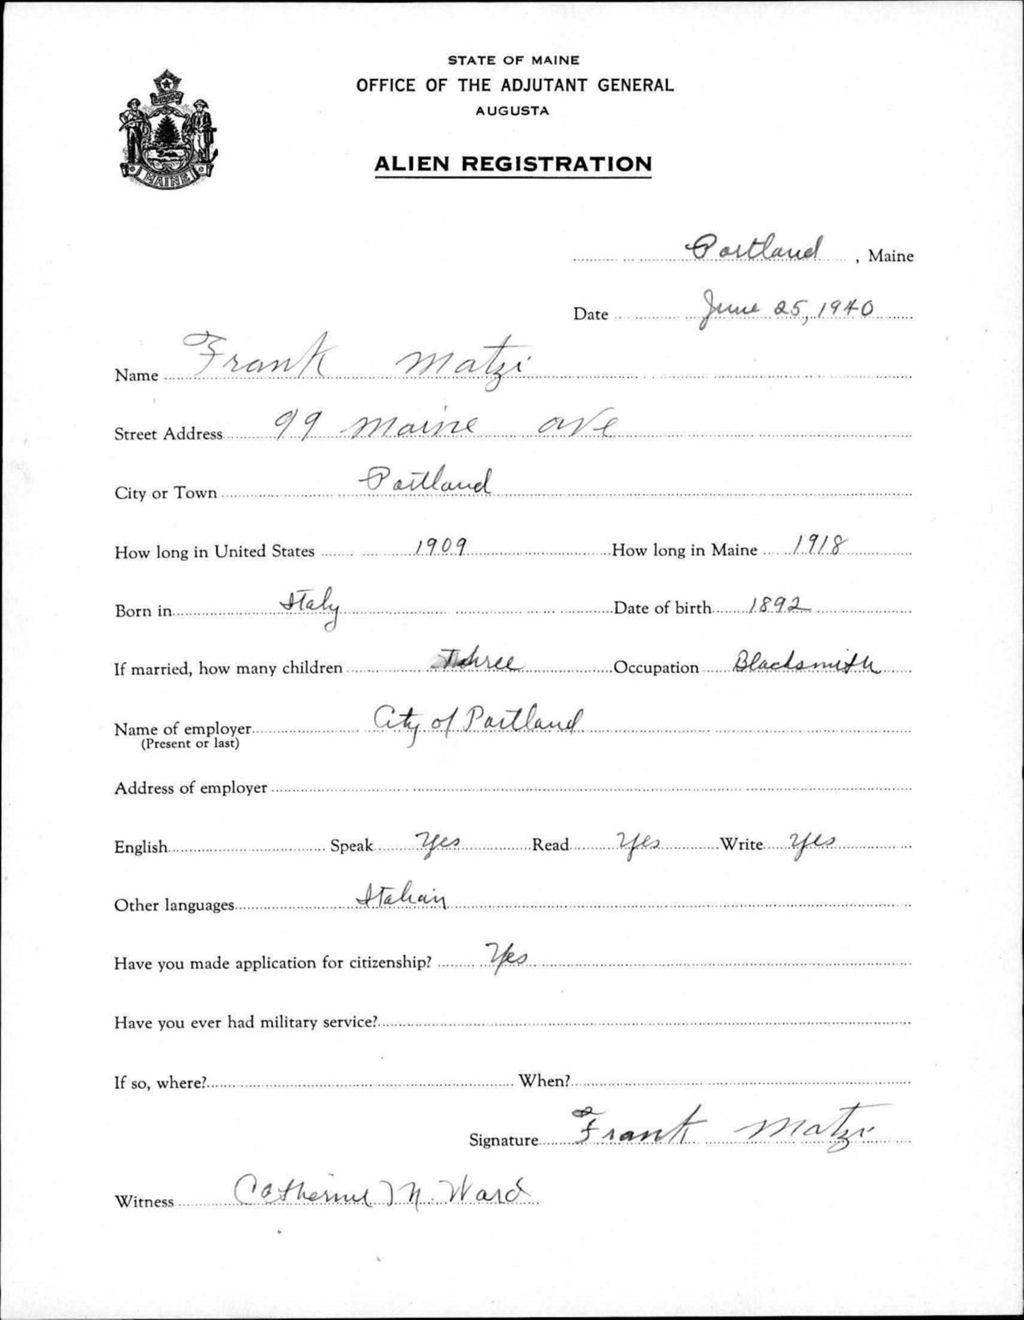 STATE OF MAINE
OFFICE OF THE ADJUTANT GENERAL
AUGUSTA
ALIEN REGISTRATION
MAINE
Portland, Maine
Date June 25, 1940
Name Frank Matzi
Street Address 99 Maine ave
City or Town Portland
How long in United States 1909 How long in Maine 1918
Born in Italy Date of birth 1892
If married, how many children Three Occupation Blacksmith
Name of employer City of Portland
(Present or last)
Address of employer
English Speak Yes Read Yes Write Yes
Other languages Italian
Have you made application for citizenship? Yes
Have you ever had military service?
If so, where? When?
Signature Frank Matzi
Witness Catherine M. Ward